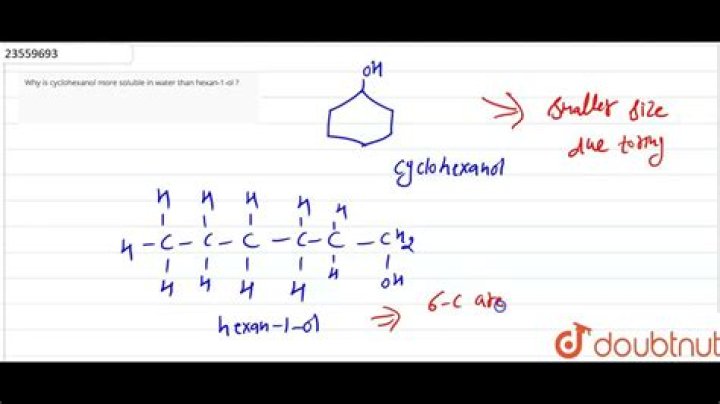 23559693
Why is cyclohexanol more soluble in water than hexan-1-ol ?
OH
smaller size
due to ring
cyclohexanol
H H H H H
H - C - C - C - C - C - CH2
H H H H H OH
hexan-1-ol
6-C are
doubtnut